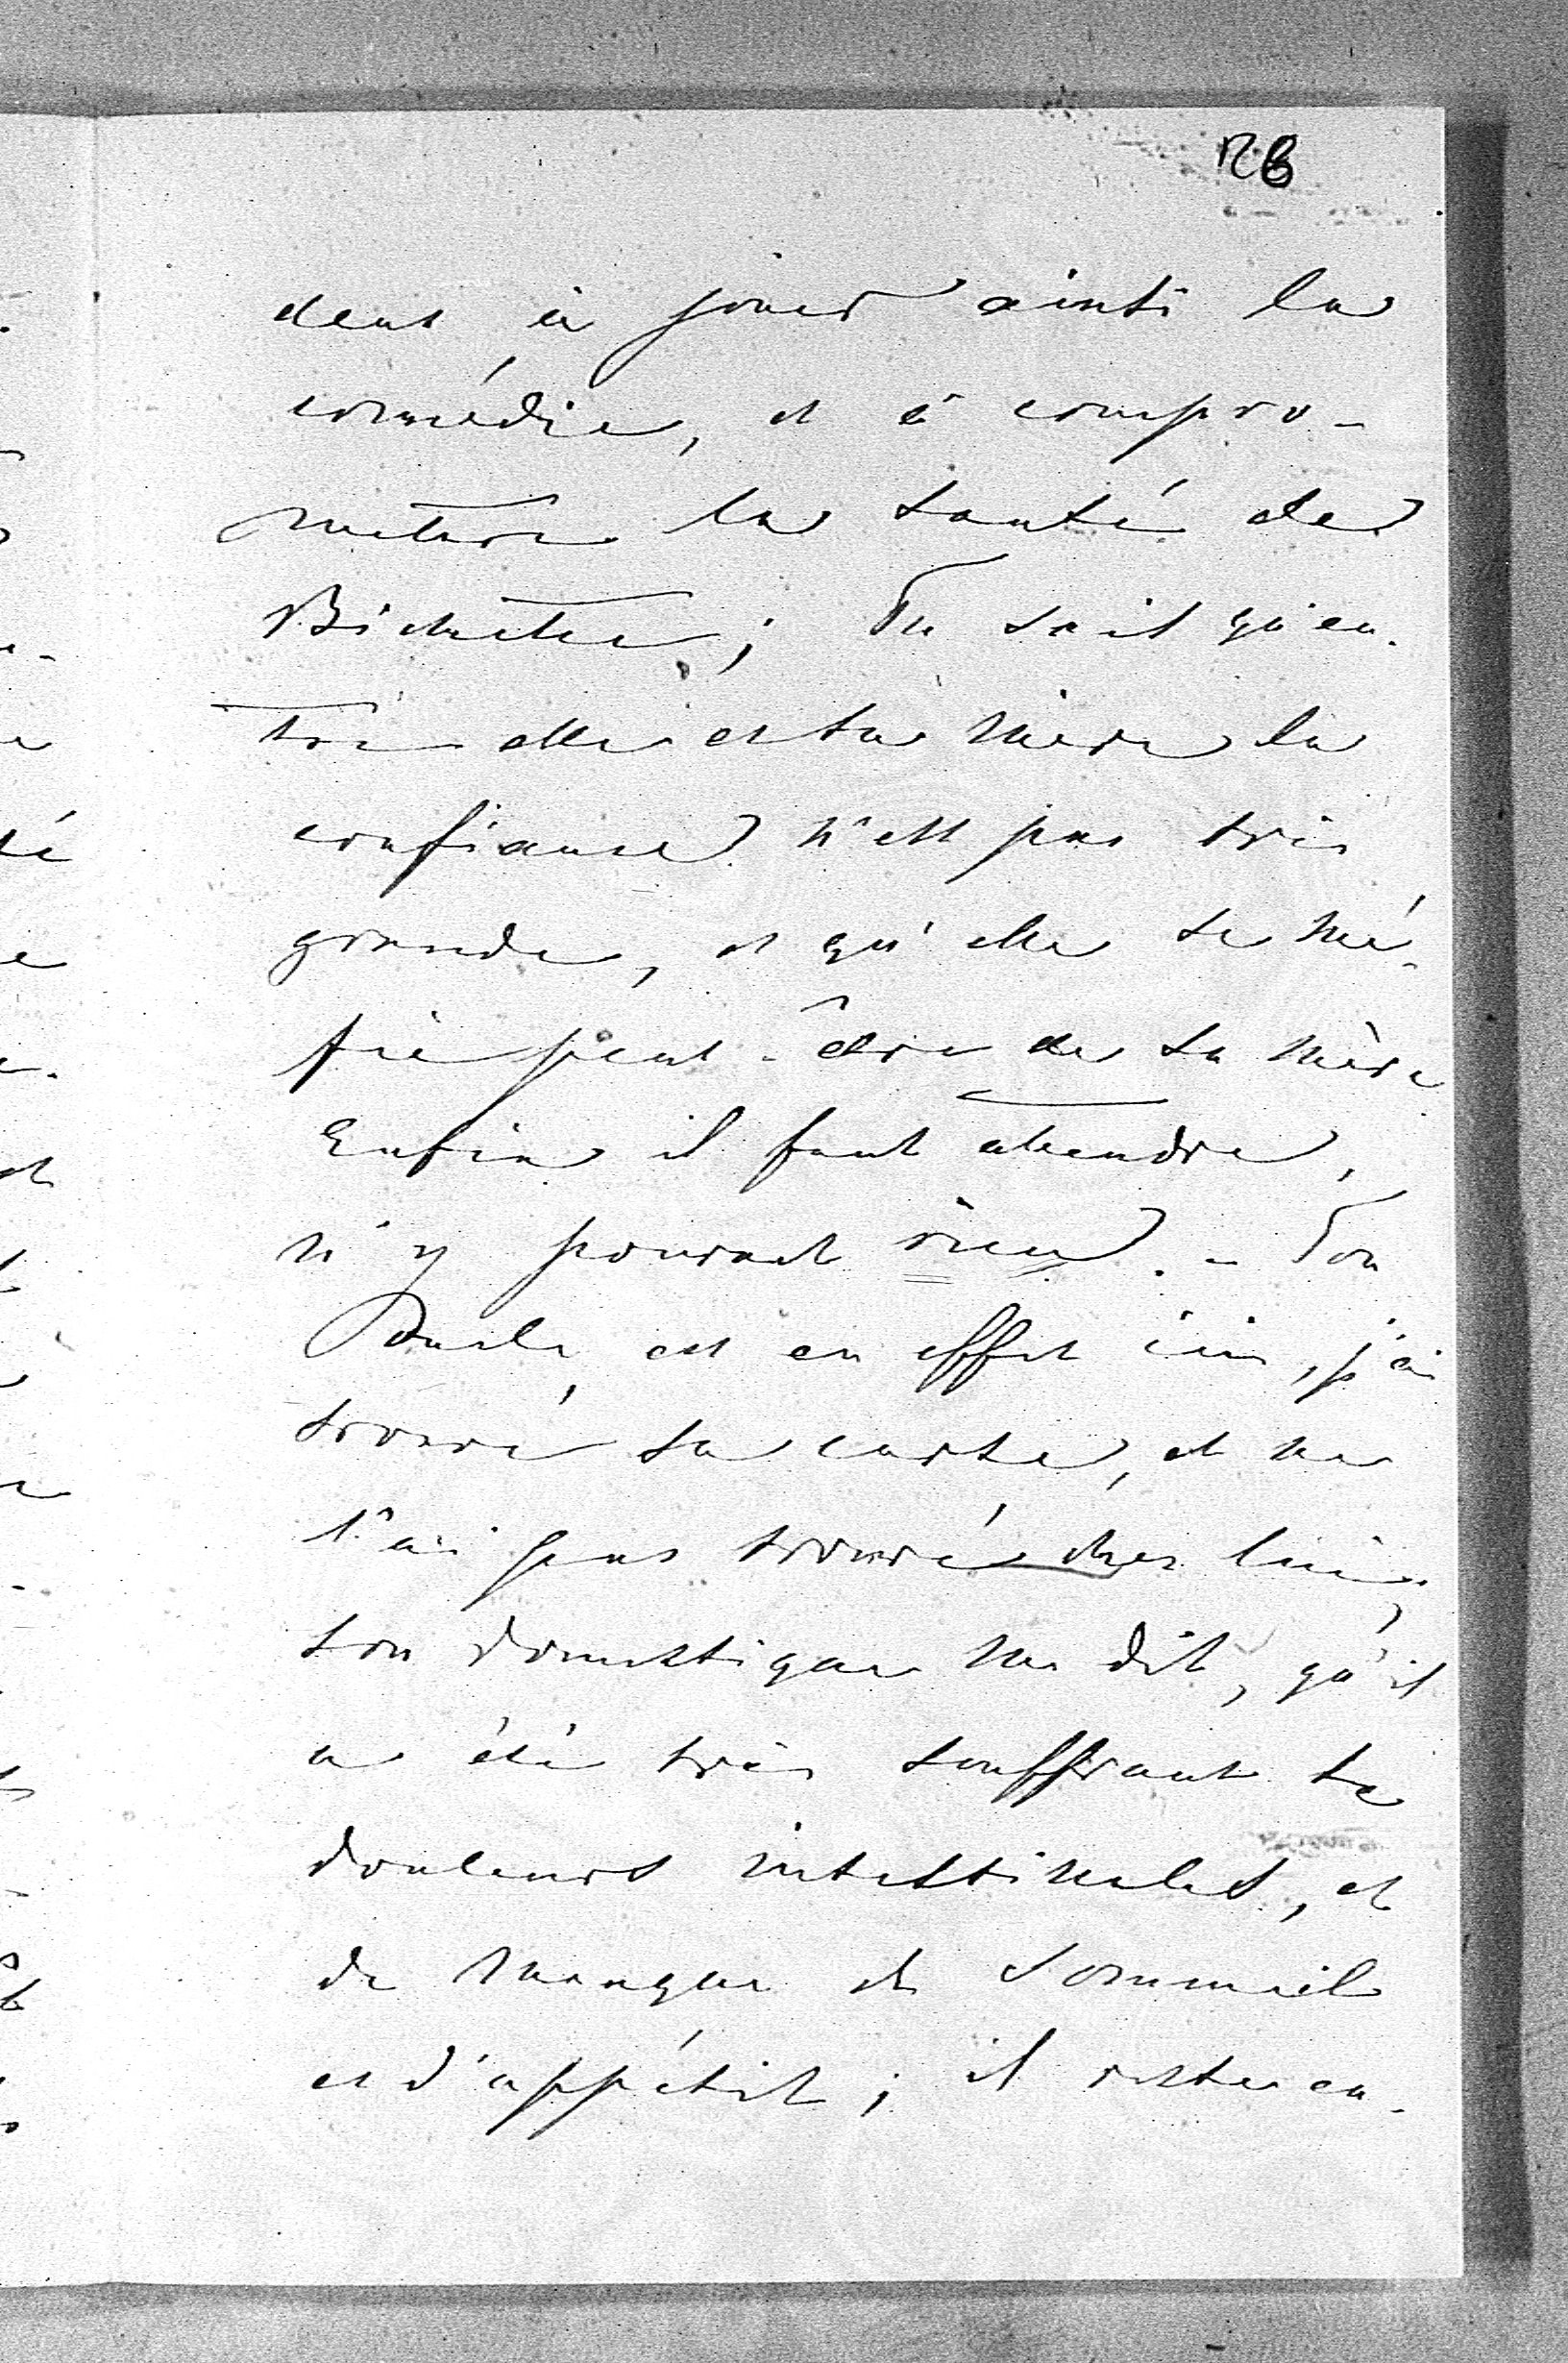 126
dent à jouer ainsi la
comédie, et à compro-
mettre la santé de
Bichette; Tu sais qu'en-
tre elle et sa mère la
confiance n'est pas très
grande, et qu'elle se mé-
fie peut-être de sa mère
Enfin il faut attendre,
n'y pouvant rien. - Ton
est en effet ici, j'ai
trouvé sa carte, et ne
l'ai pas trouvé chez lui,
son domestique me dit, qu'il
a été très souffrant de
douleurs intestinales, et
de manque de sommeil
et d'appétit; il reste en-